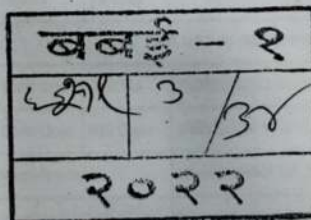 बबई - १
३ / ३४
२०२२